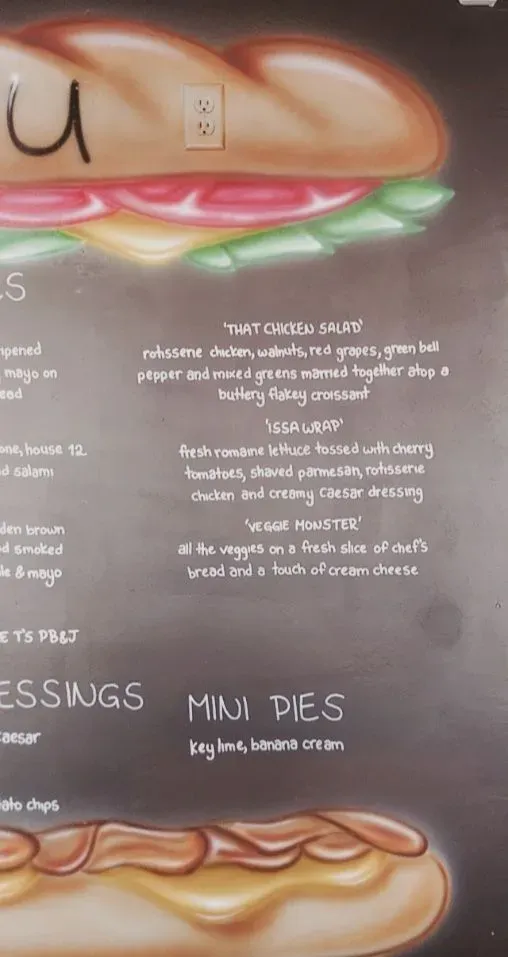 u
S
'THAT CHICKEN SALAD'
rotissene chicken, walnuts, red grapes, green bell
pepper and mixed greens married together atop a
buttery flakey croissant
'ISSA WRAP'
fresh romaine lettuce tossed with cherry
tomatoes, shaved parmesan, rotisserie
chicken and creamy caesar dressing
'VEGGIE MONSTER'
all the veggies on a fresh slice of chef's
bread and a touch of cream cheese
mayo on
one, house 12
d salami
den brown
d smoked
& mayo
E T'S PB&J
ESSINGS
caesar
chips
MINI PIES
key lime, banana cream